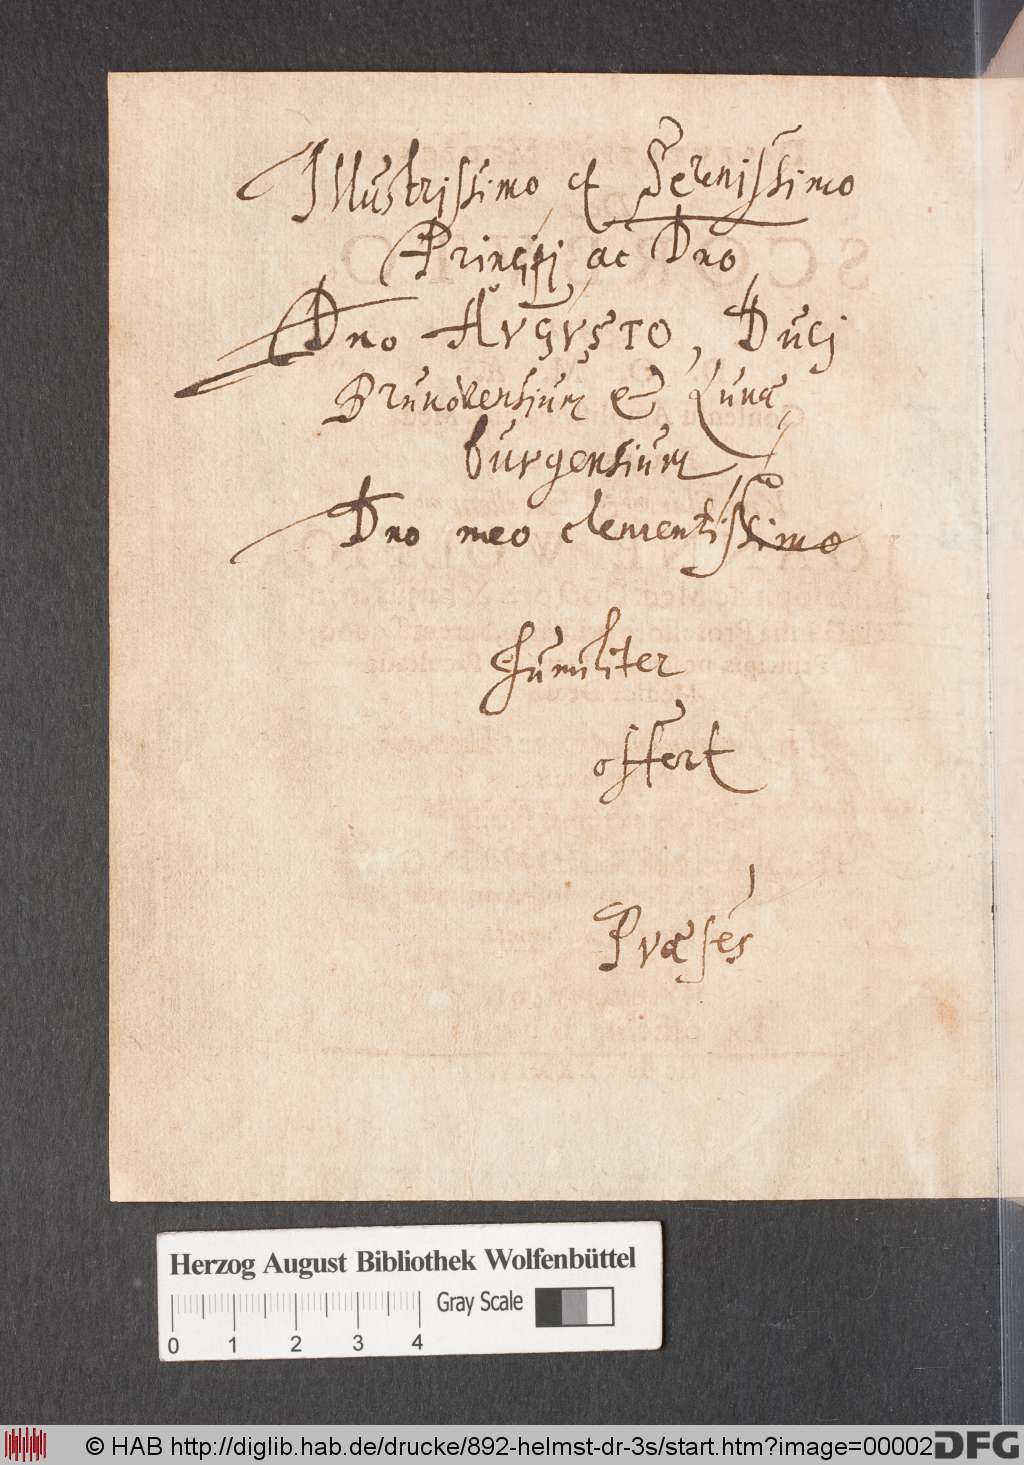 Illustrissimo et Serenissimo
Principi ac Dno
Dno AVGVSTO, Duci
Brunovensium & Lunæ
burgensium
Dno meo clementissimo
humiliter
offert
Præses
Herzog August Bibliothek Wolfenbüttel
Gray Scale
0 1 2 3 4
© HAB http://diglib.hab.de/drucke/892-helmst-dr-3s/start.htm?image=00002
DFG